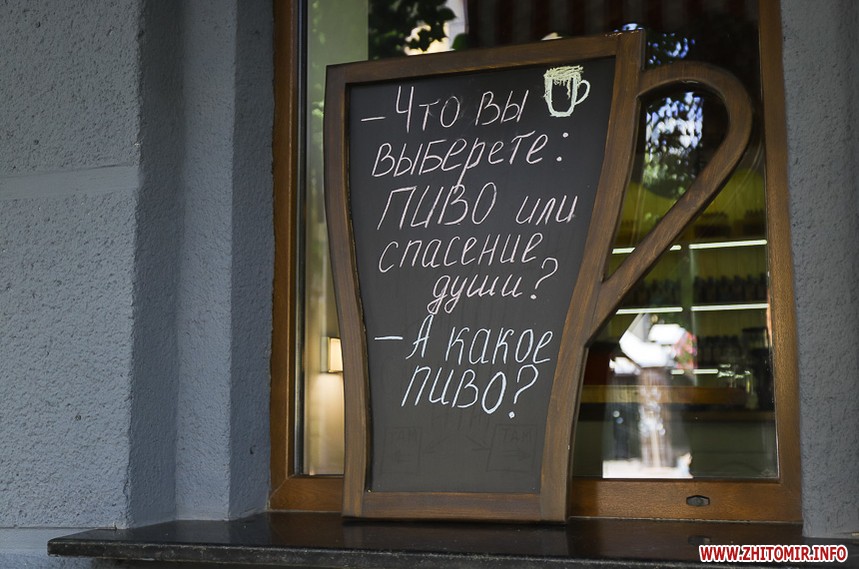 – Что вы
выберете:
пиво или
спасение
души?
– А какое
пиво?
WWW.ZHITOMIR.INFO